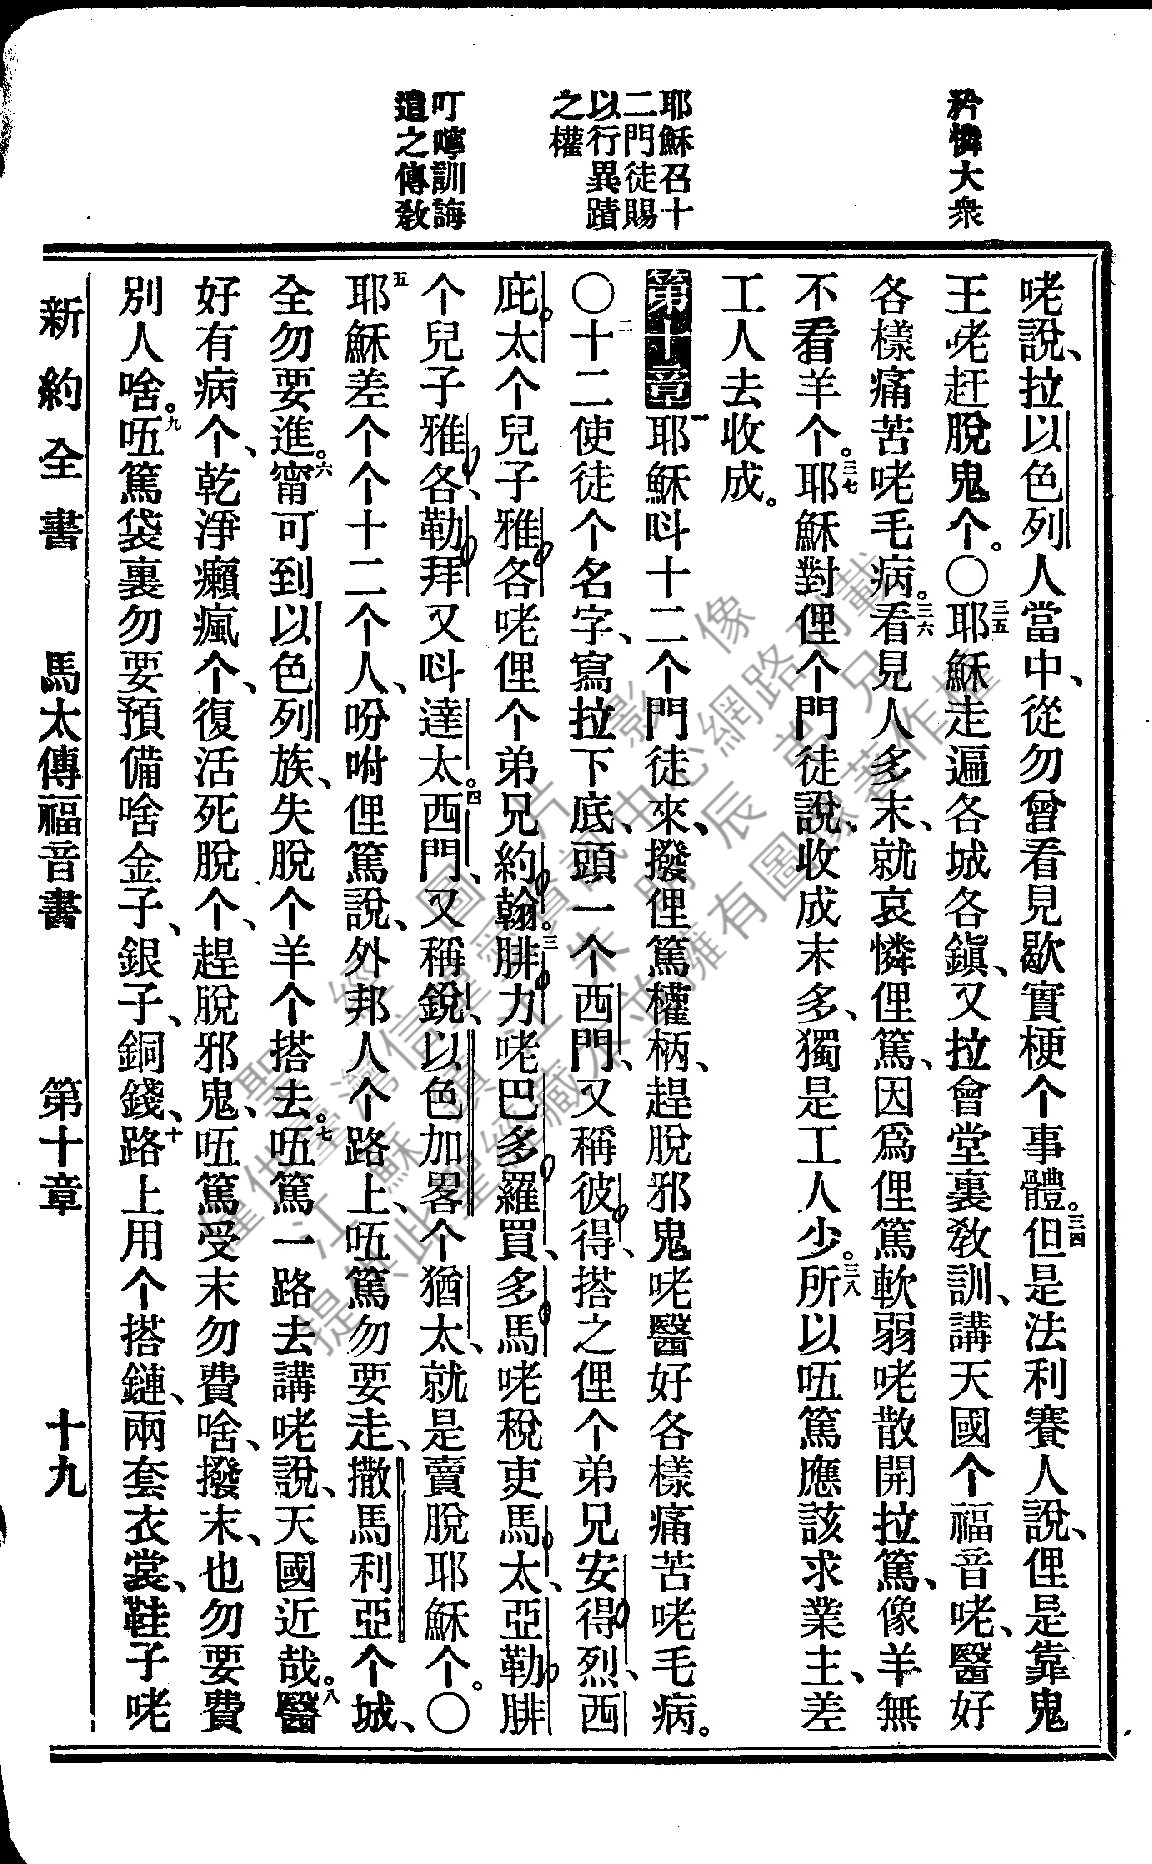 矜憐大衆
耶穌召十
二門徒賜
以行異蹟
之權
叮嚀訓誨
遣之傳敎
咾說、拉以色列人當中、從勿曾看見歇實梗个事體。三四但是法利賽人說、俚是靠鬼
王咾赶脫鬼个。〇三五耶穌走遍各城各鎭、又拉會堂裏敎訓、講天國个福音咾、醫好
各樣痛苦咾毛病。三六看見人多末、就哀憐俚篤、因爲俚篤軟弱咾散開拉篤、像羊無
不看羊个。三七耶穌對俚个門徒說、收成末多、獨是工人少。三八所以㕶篤應該求業主、差
工人去收成。
第十章一耶穌呌十二个門徒來、撥俚篤權柄、趕脫邪鬼咾醫好各樣痛苦咾毛病。
〇二十二使徒个名字、寫拉下底、頭一个西門、又稱彼得、搭之俚个弟兄安得烈、西
庇太个兒子雅各咾俚个弟兄約翰。三腓力咾巴多羅買、多馬咾稅吏馬太、亞勒腓
个兒子雅各、勒拜又呌達太。四西門、又稱銳、以色加畧个猶太、就是賣脫耶穌个。〇
五耶穌差个个十二个人、吩咐俚篤說、外邦人个路上、㕶篤勿要走、撒馬利亞个城、
全勿要進。六甯可到以色列族、失脫个羊个搭去。七㕶篤一路去講咾說、天國近哉。八醫
好有病个、乾淨癩瘋个、復活死脫个、趕脫邪鬼、㕶篤受末勿費啥、撥末、也勿要費
別人啥。九㕶篤袋裏勿要預備啥金子、銀子、銅錢、十路上用个搭鏈、兩套衣裳、鞋子咾
新約全書 馬太傳福音書 第十章 十九
聖經圖片影像
僅供臺灣信望愛資訊中心網路刊載
江蘇鎮江朱明辰弟兄
提供此聖經藏本並擁有圖像著作權